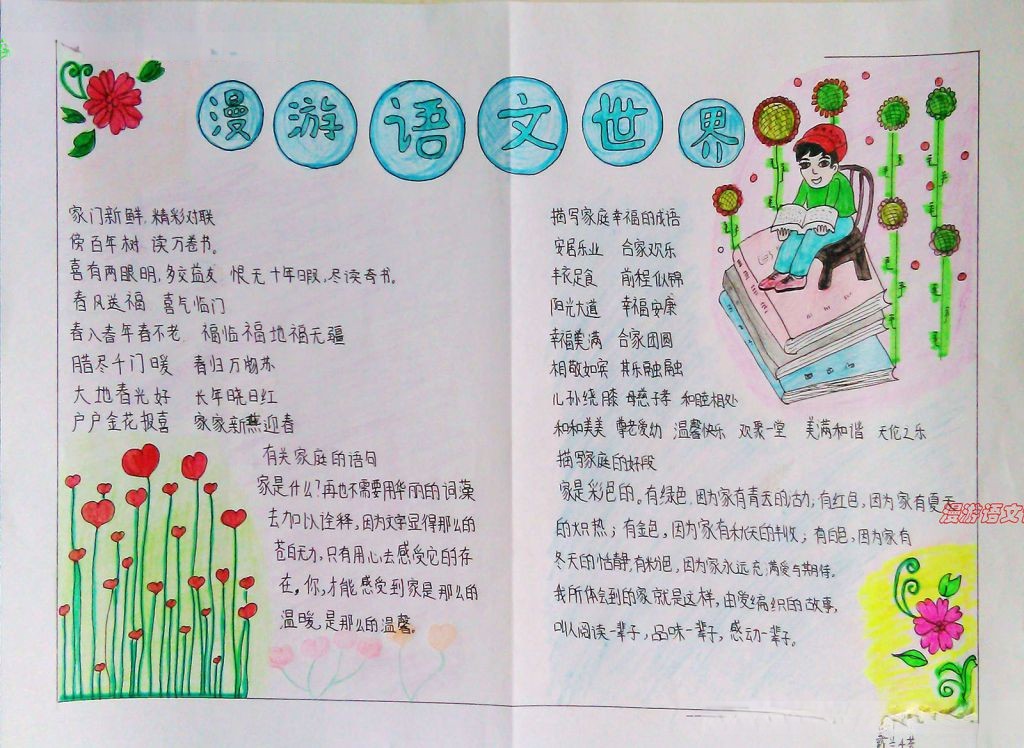 漫游语文世界
家门新鲜,精彩对联
傍百年树 读万卷书。
喜有两眼明,多交益友 恨无十年暇,尽读奇书。
春风送福 喜气临门
春入春年春不老 福临福地福无疆
腊尽千门暖 春归万物苏
大地春光好 长年晓日红
户户金花报喜 家家新燕迎春
有关家庭的语句
家是什么?再也不需要用华丽的词藻
去加以诠释,因为文字显得那么的
苍白无力,只有用心去感受它的存
在,你,才能感受到家是那么的
温暖,是那么的温馨。
描写家庭幸福的成语
安居乐业 合家欢乐
丰衣足食 前程似锦
阳光大道 幸福安康
幸福美满 合家团圆
相敬如宾 其乐融融
儿孙绕膝 母慈子孝 和睦相处
和和美美 尊老爱幼 温馨快乐 欢聚一堂 美满和谐 天伦之乐
描写家庭的好段
家是彩色的。有绿色,因为家有青春的活力;有红色,因为家有夏天
的炽热;有金色,因为家有秋天的丰收;有白色,因为家有
冬天的恬静,有粉色,因为家永远充满爱与期待。
我所体会到的家就是这样,由爱编织的故事,
叫人阅读一辈子,品味一辈子,感动一辈子。
漫游语文